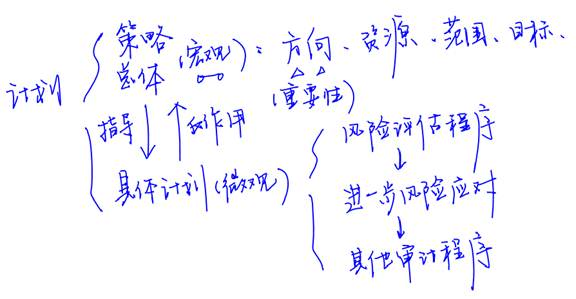 策略
计划 总体(宏观)：方向、资源、范围、目标、
(重要性)
指导 反作用
具体计划(微观)
风险评估程序
进一步风险应对
其他审计程序